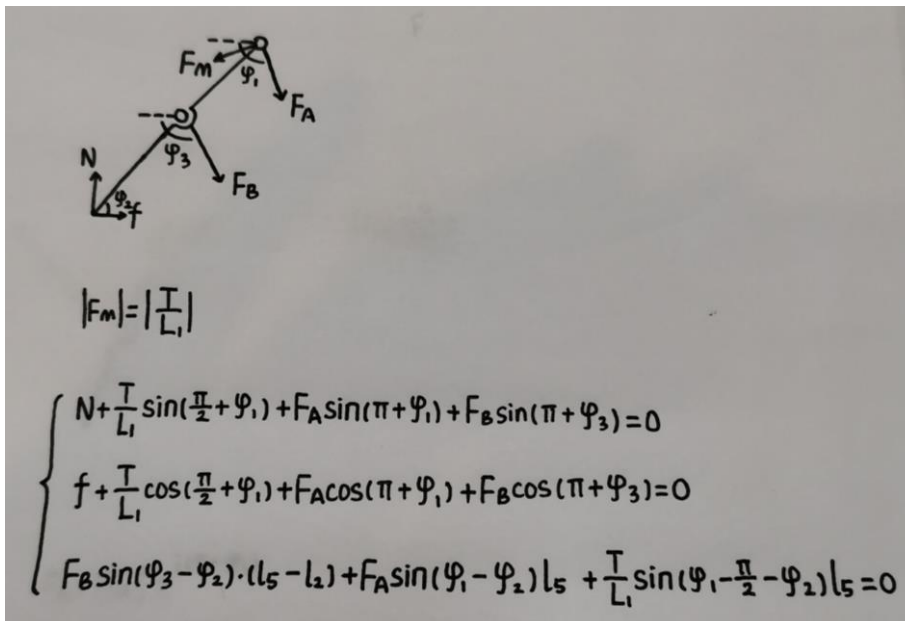 F_M φ_1
F_A
φ_3
F_B
N
φ_2 f
|F_m|=|T/L_1|
N+T/L_1 sin(π/2+φ_1)+F_A sin(π+φ_1)+F_B sin(π+φ_3)=0
f+T/L_1 cos(π/2+φ_1)+F_A cos(π+φ_1)+F_B cos(π+φ_3)=0
F_B sin(φ_3-φ_2)·(l_5-l_2)+F_A sin(φ_1-φ_2)l_5+T/L_1 sin(φ_1-π/2-φ_2)l_5=0